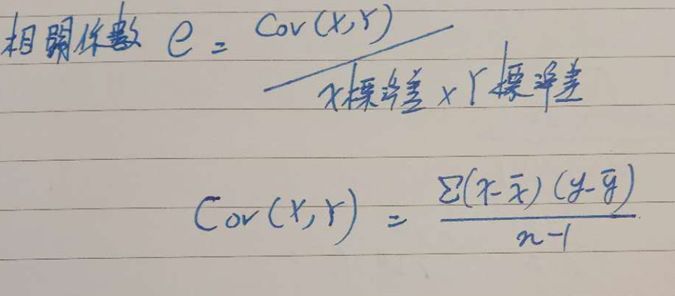 相關係數 ρ = Cov(X,Y) / X標準差 × Y標準差
Cov(X,Y) = Σ(x-x̄)(y-ȳ) / n-1